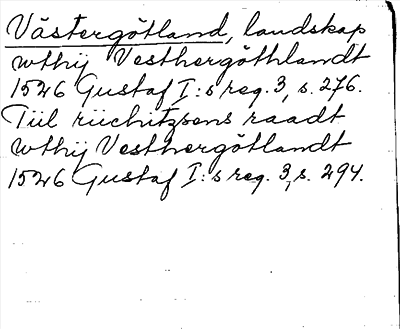 Västergötland, landskap
wthij Vesthergöthlandt
1526 Gustaf I:s reg. 3, s. 276.
Tiil riichitzsens raadt
wthij Vesthergötlandt
1526 Gustaf I:s reg. 3, s. 294.